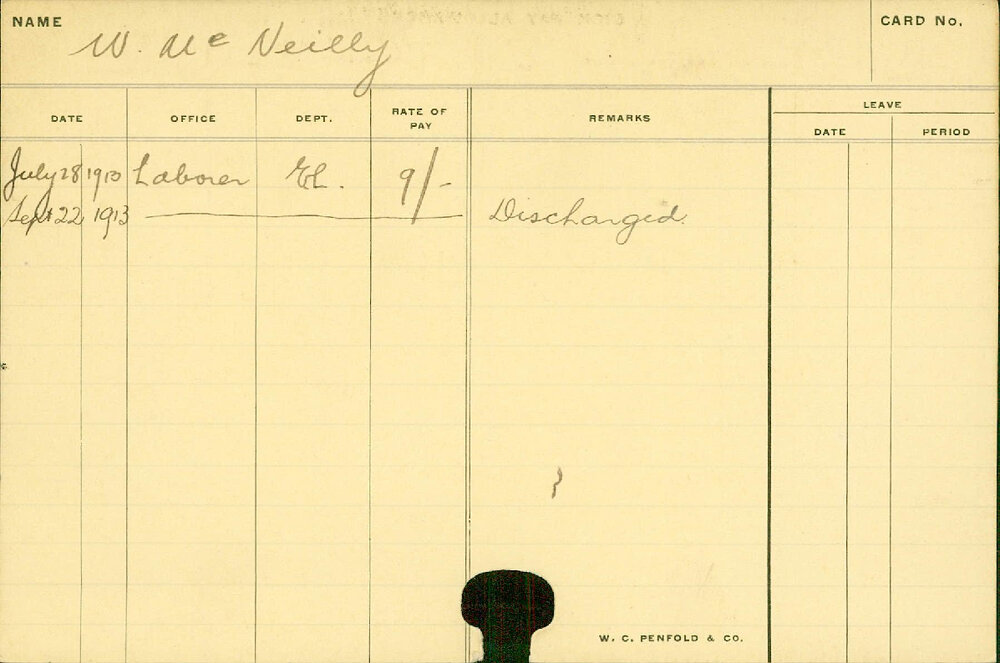 NAME W. Mc Neilly CARD No.
DATE OFFICE DEPT. RATE OF PAY REMARKS LEAVE
DATE PERIOD
July 28 1913 Laborer El. 9/-
Sept 22 1913 Discharged.
W. C. PENFOLD & CO.